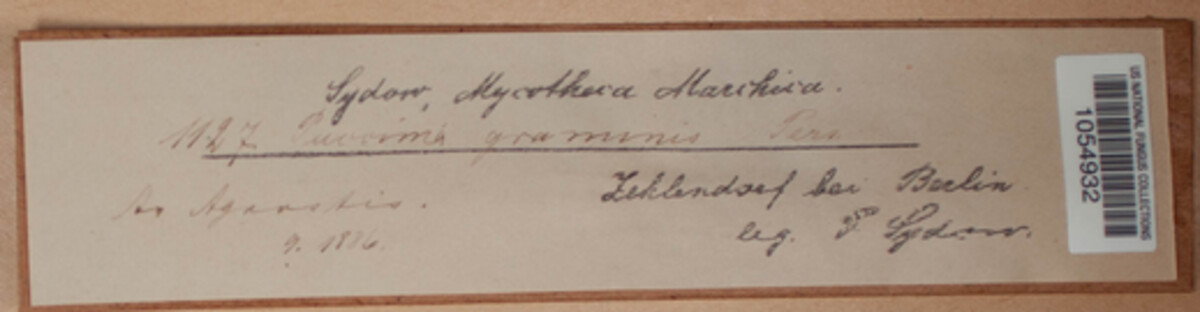 Sydow, Mycotheca Marchica.
1127. Puccinia graminis Pers
Zehlendorf bei Berlin
Agrostis.
leg. P Sydow.
9. 1886.
US NATIONAL FUNGUS COLLECTIONS
1054932